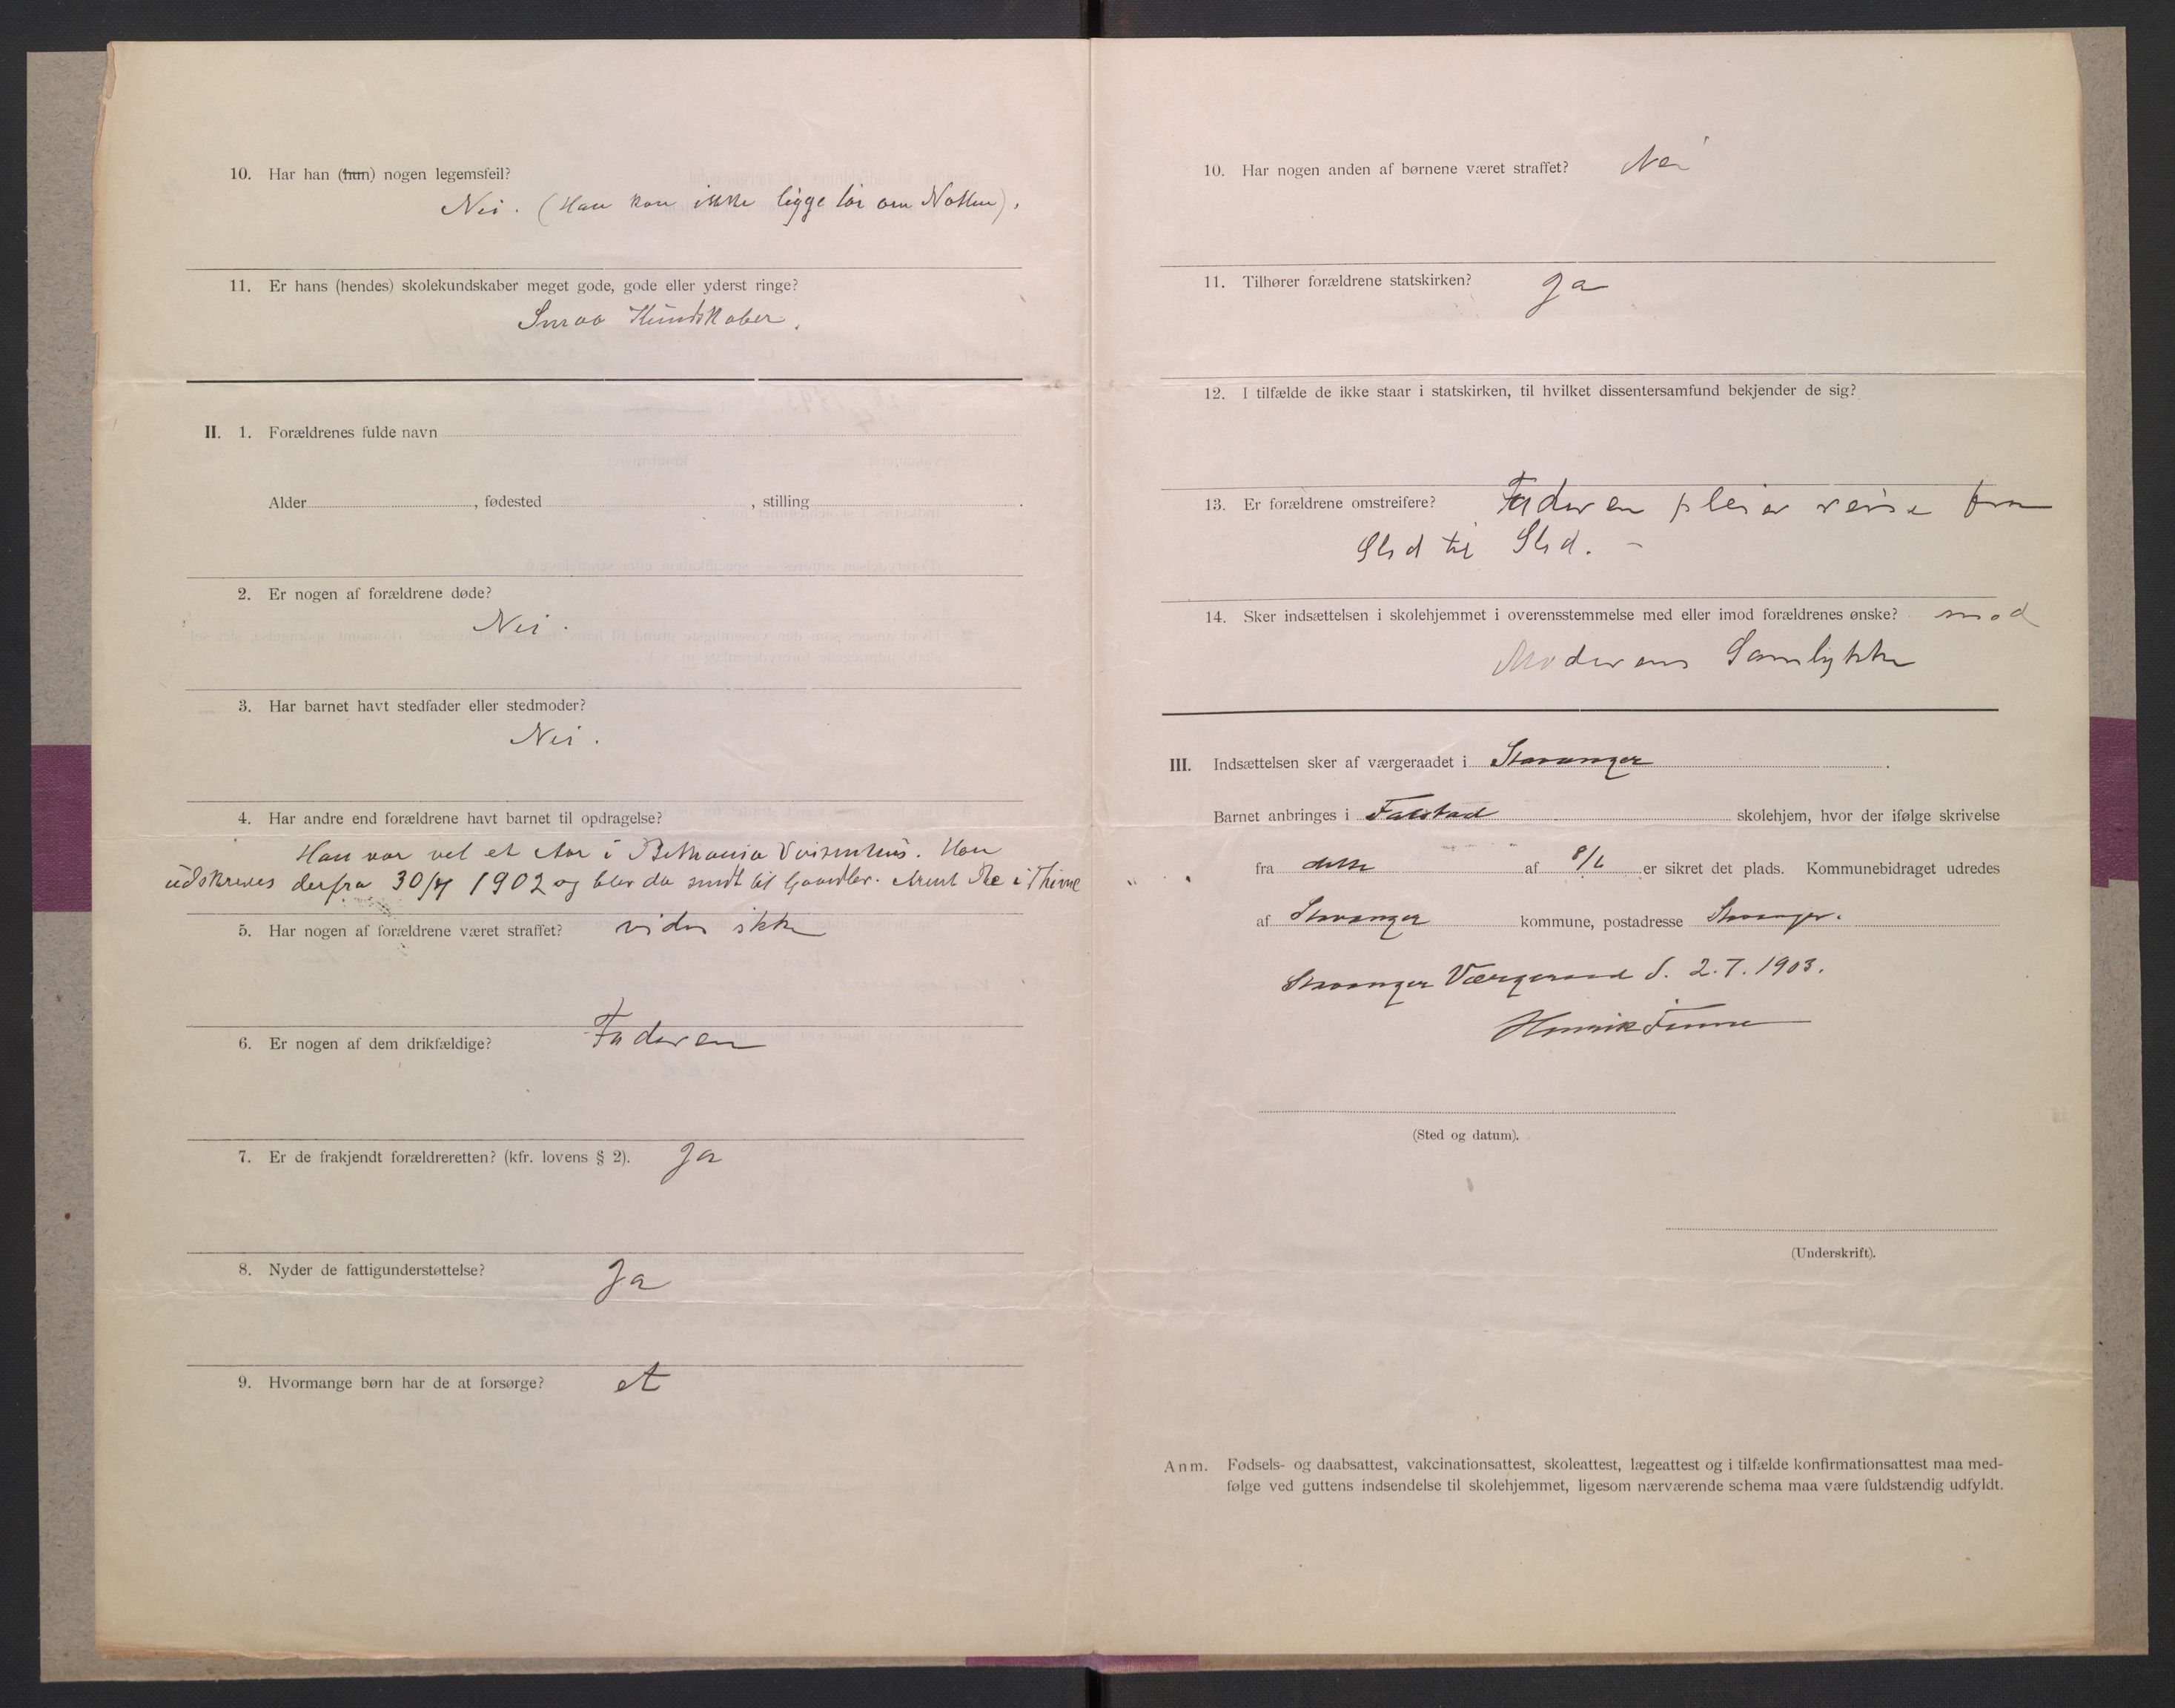 10. Har han (hun) nogen legemsfeil?
Nei. (Han kan ikke ligge tør om Natten).
11. Er hans (hendes) skolekundskaber meget gode, gode eller yderst ringe?
Smaa Kundskaber.
II. 1. Forældrenes fulde navn
Alder , fødested , stilling .
2. Er nogen af forældrene døde?
Nei.
3. Har barnet havt stedfader eller stedmoder?
Nei.
4. Har andre end forældrene havt barnet til opdragelse?
Han var vel et Aar i Bethania Vaisenhus. Han
udskreves derfra 30/4 1902 og blev da sendt til Gaardbr. Arent Re i Thime
5. Har nogen af forældrene været straffet? vides ikke
6. Er nogen af dem drikfældige? Faderen
7. Er de frakjendt forældreretten? (kfr. lovens § 2). Ja
8. Nyder de fattigunderstøttelse? Ja
9. Hvormange børn har de at forsørge? et
10. Har nogen anden af børnene været straffet? Nei
11. Tilhører forældrene statskirken? Ja
12. I tilfælde de ikke staar i statskirken, til hvilket dissentersamfund bekjender de sig?
13. Er forældrene omstreifere? Faderen pleier reise fra
Sted til Sted. –
14. Sker indsættelsen i skolehjemmet i overensstemmelse med eller imod forældrenes ønske? med
Moderens Samtykke
III. Indsættelsen sker af værgeraadet i Stavanger .
Barnet anbringes i Falstad skolehjem, hvor der ifølge skrivelse
fra dette af 8/6 er sikret det plads. Kommunebidraget udredes
af Stavanger kommune, postadresse Stavanger.
Stavanger Værgeraad d. 2.7.1903.
Henrik Finne
(Sted og datum).
(Underskrift).
Anm. Fødsels- og daabsattest, vakcinationsattest, skoleattest, lægeattest og i tilfælde konfirmationsattest maa med-
følge ved guttens indsendelse til skolehjemmet, ligesom nærværende schema maa være fuldstændig udfyldt.